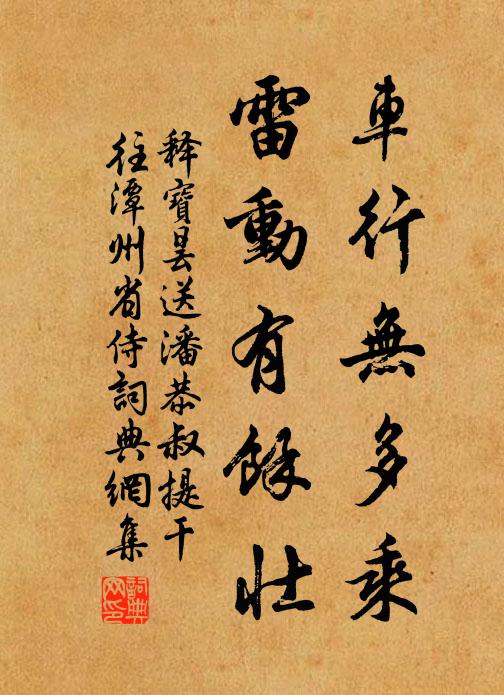 車行無多乘
雷動有餘壯
釋寶曇送潘恭叔提干
往潭州省侍詞典網集
詞典網印